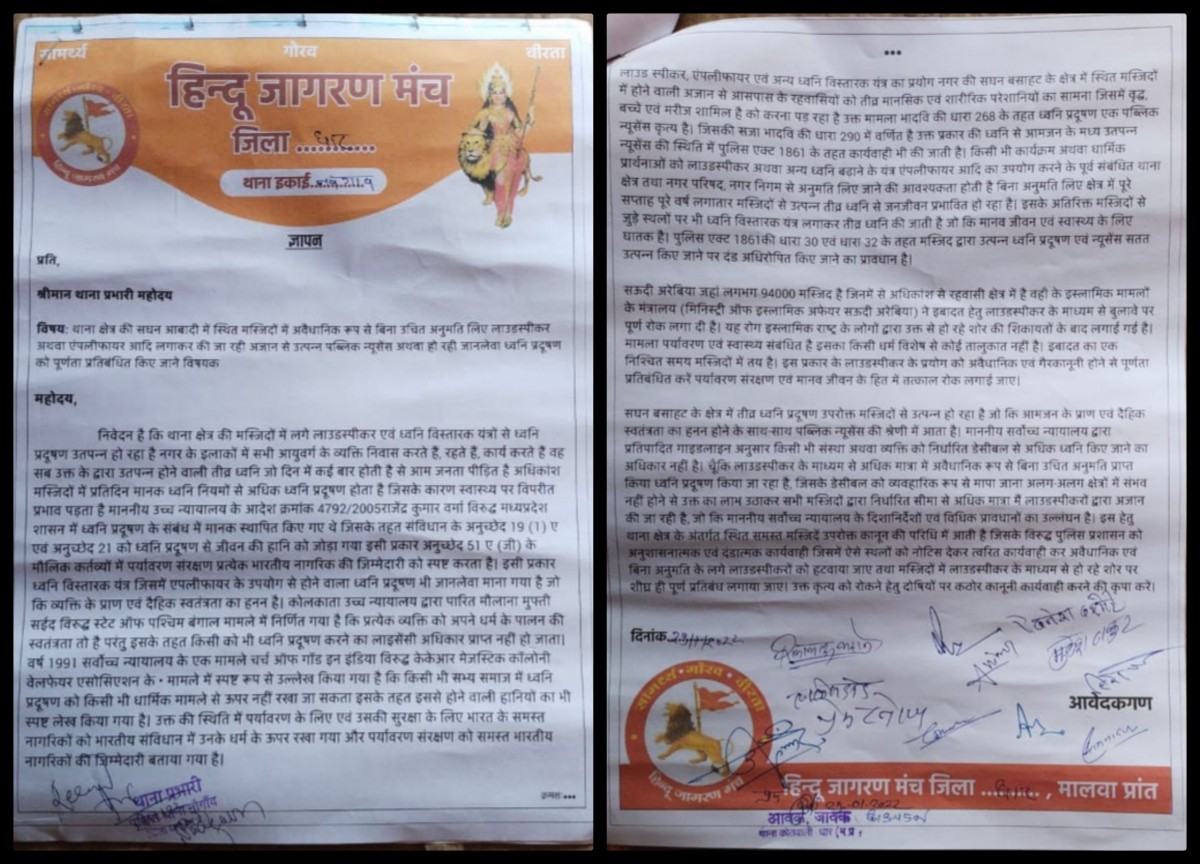 सामर्थ्य गौरव वीरता
हिन्दू जागरण मंच
जिला ............
थाना इकाई
हिन्दू जागरण मंच
ज्ञापन
प्रति,
श्रीमान थाना प्रभारी महोदय
विषय: थाना क्षेत्र की सघन आबादी में स्थित मस्जिदों में अवैधानिक रूप से बिना उचित अनुमति लिए लाउडस्पीकर
अथवा एंपलीफायर आदि लगाकर की जा रही अजान से उत्पन्न पब्लिक न्यूसेंस अथवा हो रही जानलेवा ध्वनि प्रदूषण
को पूर्णता प्रतिबंधित किए जाने विषयक
महोदय,
निवेदन है कि थाना क्षेत्र की मस्जिदों में लगे लाउडस्पीकर एवं ध्वनि विस्तारक यंत्रों से ध्वनि
प्रदूषण उतपन्न हो रहा है नगर के इलाकों में सभी आयुवर्ग के व्यक्ति निवास करते है, रहते है, कार्य करते है वह
सब उक्त के द्वारा उतपन्न होने वाली तीव्र ध्वनि जो दिन में कई बार होती है से आम जनता पीडित है अधिकांश
मस्जिदों में प्रतिदिन मानक ध्वनि नियमों से अधिक ध्वनि प्रदूषण होता है जिसके कारण स्वास्थ्य पर विपरीत
प्रभाव पड़ता है माननीय उच्च न्यायालय के आदेश क्रमांक 4792/2005राजेंद्र कुमार वर्मा विरुद्ध मध्यप्रदेश
शासन में ध्वनि प्रदूषण के संबंध में मानक स्थापित किए गए थे जिसके तहत संविधान के अनुच्छेद 19 (1) ए
एवं अनुच्छेद 21 को ध्वनि प्रदूषण से जीवन की हानि को जोड़ा गया इसी प्रकार अनुच्छेद 51 ए (जी) के
मौलिक कर्तव्यों में पर्यावरण संरक्षण प्रत्येक भारतीय नागरिक की जिम्मेदारी को स्पष्ट करता है। इसी प्रकार
ध्वनि विस्तारक यंत्र जिसमें एपलीफायर के उपयोग से होने वाला ध्वनि प्रदूषण भी जानलेवा माना गया है जो
कि व्यक्ति के प्राण एवं दैहिक स्वतंत्रता का हनन है। कोलकाता उच्च न्यायालय द्वारा पारित मौलाना मुफ्ती
सईद विरुद्ध स्टेट ऑफ पश्चिम बंगाल मामले में निर्णित गया है कि प्रत्येक व्यक्ति को अपने धर्म के पालन की
स्वतंत्रता तो है परंतु इसके तहत किसी को भी ध्वनि प्रदूषण करने का लाइसेंसी अधिकार प्राप्त नहीं हो जाता।
वर्ष 1991 सर्वोच्च न्यायालय के एक मामले चर्च ऑफ गॉड इन इंडिया विरुद्ध केकेआर मेजस्टिक कॉलोनी
वेलफेयर एसोसिएशन के · मामले में स्पष्ट रूप से उल्लेख किया गया है कि किसी भी सभ्य समाज में ध्वनि
प्रदूषण को किसी भी धार्मिक मामले से ऊपर नहीं रखा जा सकता इसके तहत इससे होने वाली हानियों का भी
स्पष्ट लेख किया गया है। उक्त की स्थिति में पर्यावरण के लिए एवं उसकी सुरक्षा के लिए भारत के समस्त
नागरिकों को भारतीय संविधान में उनके धर्म के ऊपर रखा गया और पर्यावरण संरक्षण को समस्त भारतीय
नागरिकों की जिम्मेदारी बताया गया है।
थाना प्रभारी
क्रमशः•••
•••
लाउड स्पीकर, एंपलीफायर एवं अन्य ध्वनि विस्तारक यंत्र का प्रयोग नगर की सघन बसाहट के क्षेत्र में स्थित मस्जिदों
में होने वाली अजान से आसपास के रहवासियों को तीव्र मानसिक एवं शारीरिक परेशानियों का सामना जिसमें वृद्ध,
बच्चे एवं मरीज शामिल है को करना पड़ रहा है उक्त मामला भादवि की धारा 268 के तहत ध्वनि प्रदूषण एक पब्लिक
न्यूसेंस कृत्य है। जिसकी सजा भादवि की धारा 290 में वर्णित है उक्त प्रकार की ध्वनि से आमजन के मध्य उतपन्न
न्यूसेंस की स्थिति में पुलिस एक्ट 1861 के तहत कार्यवाही भी की जाती है। किसी भी कार्यक्रम अथवा धार्मिक
प्रार्थनाओं को लाउडस्पीकर अथवा अन्य ध्वनि बढ़ाने के यंत्र एंपलीफायर आदि का उपयोग करने के पूर्व संबंधित थाना
क्षेत्र तथा नगर परिषद, नगर निगम से अनुमति लिए जाने की आवश्यकता होती है बिना अनुमति लिए क्षेत्र में पूरे
सप्ताह पूरे वर्ष लगातार मस्जिदों से उत्पन्न तीव्र ध्वनि से जनजीवन प्रभावित हो रहा है। इसके अतिरिक्त मस्जिदों से
जुड़े स्थलों पर भी ध्वनि विस्तारक यंत्र लगाकर तीव्र ध्वनि की जाती है जो कि मानव जीवन एवं स्वास्थ्य के लिए
घातक है। पुलिस एक्ट 1861की धारा 30 एवं धारा 32 के तहत मस्जिद द्वारा उत्पन्न ध्वनि प्रदूषण एवं न्यूसेंस सतत
उत्पन्न किए जाने पर दंड अधिरोपित किए जाने का प्रावधान है।
सऊदी अरेबिया जहां लगभग 94000 मस्जिद है जिनमें से अधिकांश से रहवासी क्षेत्र में है वही के इस्लामिक मामलों
के मंत्रालय (मिनिस्ट्री ऑफ इस्लामिक अफेयर सऊदी अरेबिया) ने इबादत हेतु लाउडस्पीकर के माध्यम से बुलावे पर
पूर्ण रोक लगा दी है। यह रोग इस्लामिक राष्ट्र के लोगों द्वारा उक्त से हो रहे शोर की शिकायतों के बाद लगाई गई है।
मामला पर्यावरण एवं स्वास्थ्य संबंधित है इसका किसी धर्म विशेष से कोई तालुकात नहीं है। इबादत का एक
निश्चित समय मस्जिदों में तय है। इस प्रकार के लाउडस्पीकर के प्रयोग को अवैधानिक एवं गैरकानूनी होने से पूर्णता
प्रतिबंधित करें पर्यावरण संरक्षण एवं मानव जीवन के हित में तत्काल रोक लगाई जाए।
सघन बसाहट के क्षेत्र में तीव्र ध्वनि प्रदूषण उपरोक्त मस्जिदों से उत्पन्न हो रहा है जो कि आमजन के प्राण एवं दैहिक
स्वतंत्रता का हनन होने के साथ-साथ पब्लिक न्यूसेंस की श्रेणी में आता है। माननीय सर्वोच्च न्यायालय द्वारा
प्रतिपादित गाइडलाइन अनुसार किसी भी संस्था अथवा व्यक्ति को निर्धारित डेसीबल से अधिक ध्वनि किए जाने का
अधिकार नहीं है। चूँकि लाउडस्पीकर के माध्यम से अधिक मात्रा में अवैधानिक रूप से बिना उचित अनुमति प्राप्त
किया ध्वनि प्रदूषण किया जा रहा है, जिसके डेसीबल को व्यवहारिक रूप से मापा जाना अलग-अलग क्षेत्रों में संभव
नहीं होने से उक्त का लाभ उठाकर सभी मस्जिदों द्वारा निर्धारित सीमा से अधिक मात्रा में लाउडस्पीकरों द्वारा अजान
की जा रही है, जो कि माननीय सर्वोच्च न्यायालय के दिशानिर्देशों एवं विधिक प्रावधानों का उल्लंघन है। इस हेतु
थाना क्षेत्र के अंतर्गत स्थित समस्त मस्जिदें उपरोक्त कानून की परिधि में आती है जिसके विरुद्ध पुलिस प्रशासन को
अनुशासनात्मक एवं दंडात्मक कार्यवाही जिसमें ऐसे स्थलों को नोटिस देकर त्वरित कार्यवाही कर अवैधानिक एवं
बिना अनुमति के लगे लाउडस्पीकरों को हटवाया जाए तथा मस्जिदों में लाउडस्पीकर के माध्यम से हो रहे शोर पर
शीघ्र ही पूर्ण प्रतिबंध लगाया जाए। उक्त कृत्य को रोकने हेतु दोषियों पर कठोर कानूनी कार्यवाही करने की कृपा करें।
दिनांक
आवेदकगण
सामर्थ्य • गौरव • वीरता
हिन्दू जागरण मंच
हिन्दू जागरण मंच जिला ......... , मालवा प्रांत
आवक, जावक
थाना कोतवाली धार (म.प्र.)